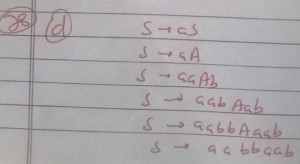 (d) S → aS
S → aA
S → aaAb
S → aabAab
S → aabbAaab
S → aabbaab